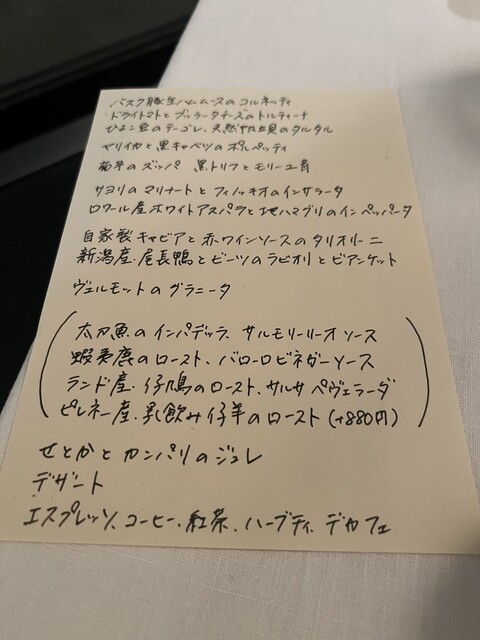 バスク豚生ハムムースのコルネッティ
・ドライトマトとブッラータチーズのトルティーナ
ひよこ豆のテーゴレ、天然帆立貝のタルタル
ヤリイカと黒キャベツのポルペッティ
筍芋のズッパ 黒トリフとモリーユ茸
サヨリのマリナートとフィノッキオのインサラータ
ロワール産ホワイトアスパラと地ハマグリのインペッパータ
自家製キャビアと赤ワインソースのタリオリーニ
新潟産・尾長鴨とビーツのラビオリとビアンケット
ヴェルモットのグラニータ
太刀魚のインパデッラ、サルモリーリオソース
蝦夷鹿のロースト、バローロビネガーソース
ランド産・仔鳩のロースト、サルサペヴェラーダ
ピレネー産・乳飲み仔羊のロースト(+880円)
せとかとカンパリのジュレ
デザート
エスプレッソ、コーヒー、紅茶、ハーブティ、デカフェ